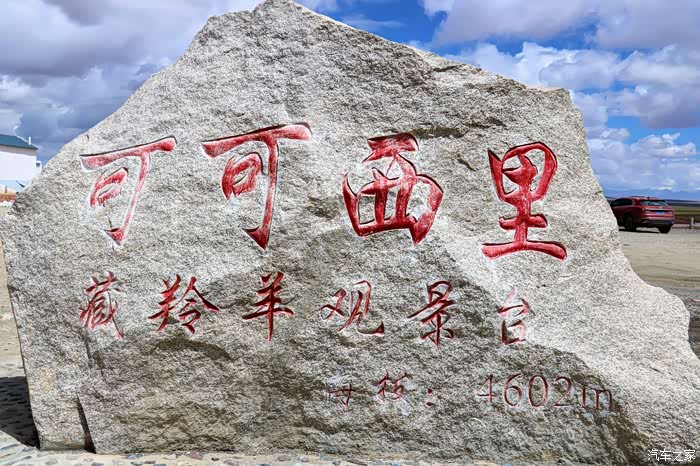 可可西里
藏羚羊观景台
海拔：4602m
汽车之家